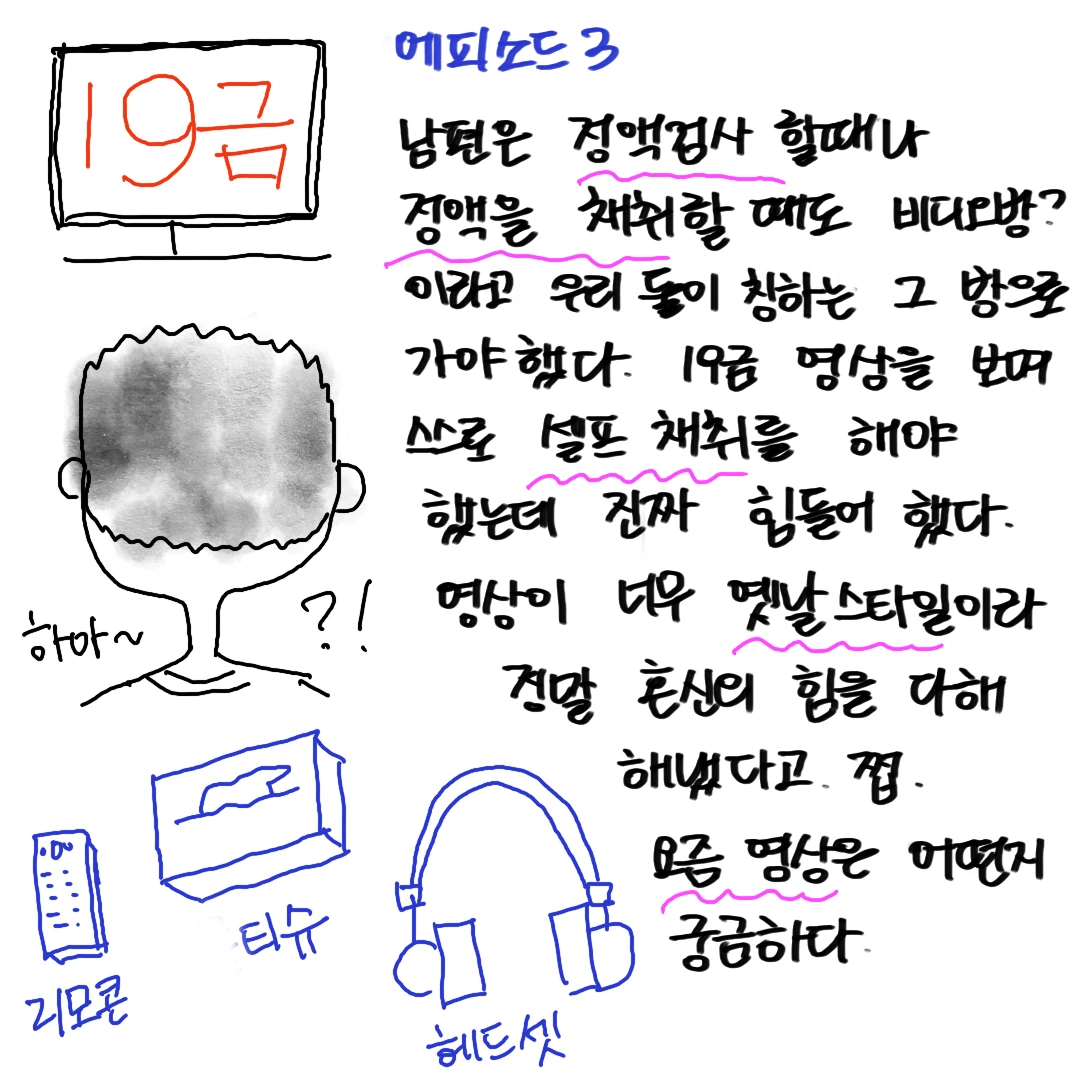 19금
에피소드 3
남편은 정액검사 할때나
정액을 채취할 때도 비디오방?
이라고 우리 둘이 칭하는 그 방으로
가야 했다. 19금 영상을 보며
스스로 셀프 채취를 해야
했는데 진짜 힘들어 했다.
영상이 너무 옛날 스타일이라
정말 혼신의 힘을 다해
해냈다고. 쩝.
요즘 영상은 어떤지
궁금하다.
하아~
?!
리모콘
티슈
헤드셋